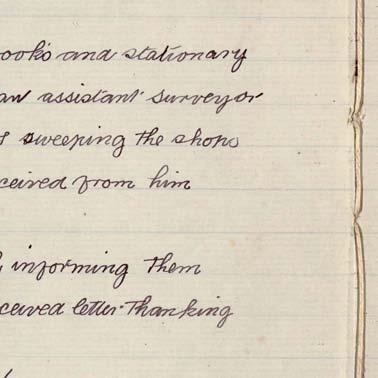 ooks and stationary
an assistant surveyor
f sweeping the shops
ceived from him
informing them
ceived letter thanking